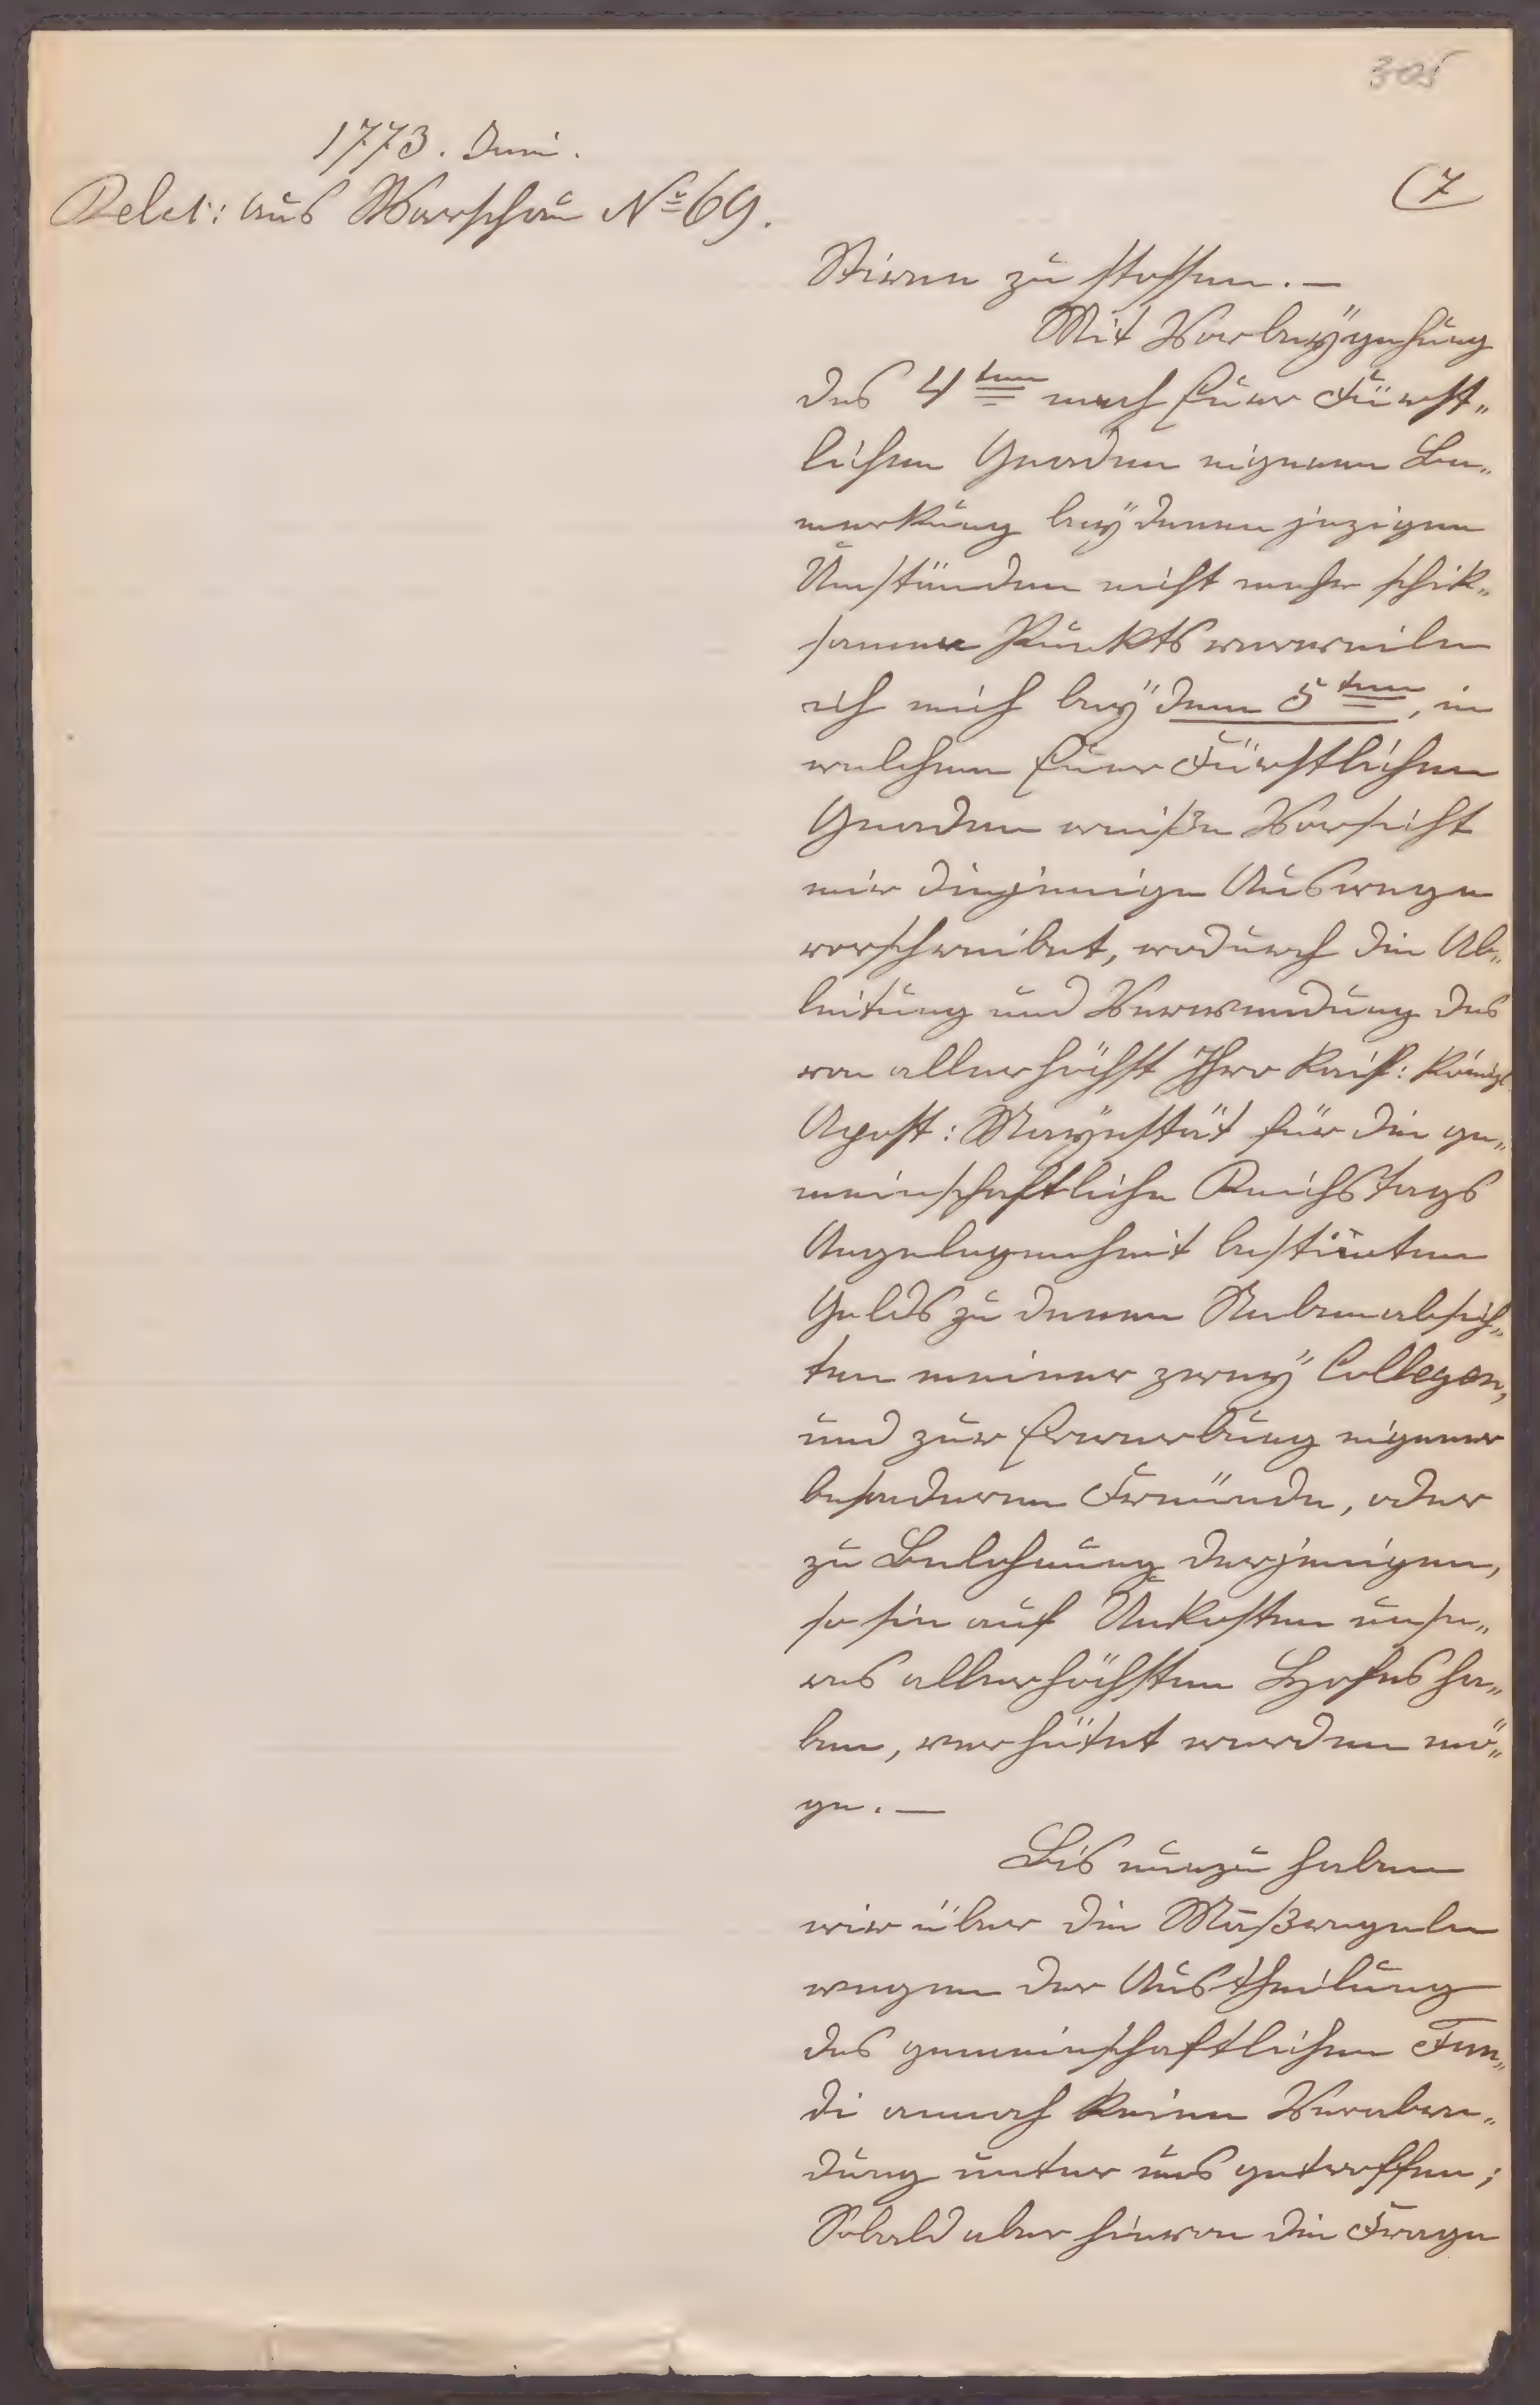 305
1773. Juni.
Relat: aus Warschau No 69.
(7
Stirne zu stossen. —
Mit Vorbeÿgehung
des 4ten nach Euer Fürst„
lichen Gnaden eigenen Be„
merkung beÿ denen jezigen
Umständen nicht mehr schik„
samen Punkts verweile
ich mich beÿ dem 5ten, in
welchem Euer Fürstlichen
Gnaden weiße Vorsicht
mir diejenige Auswege
vorschreibet, wodurch die Ab„
leitung und Verwendung des
von allerhöchst Ihro Kais: Königl.
Apost: Maÿestät für die ge„
meinschaftliche Reichstags
Angelegenheit bestimten
Gelds zu denen Nebenabsich„
ten meiner zweÿ Collegen,
und zur Erwerbung eigener
besonderen Freünde, oder
zu Belohnung derjenigen,
so sie auf Unkosten unse„
res allerhöchsten Hofes ha„
ben, verhütet werden mö„
ge. —
Bis nunzu haben
wir über die Maßregeln
wegen der Austheilung
des gemeinschaftlichen Fun„
di annoch keine Verabre„
dung unter uns getroffen;
Sobald aber hievon die Frage